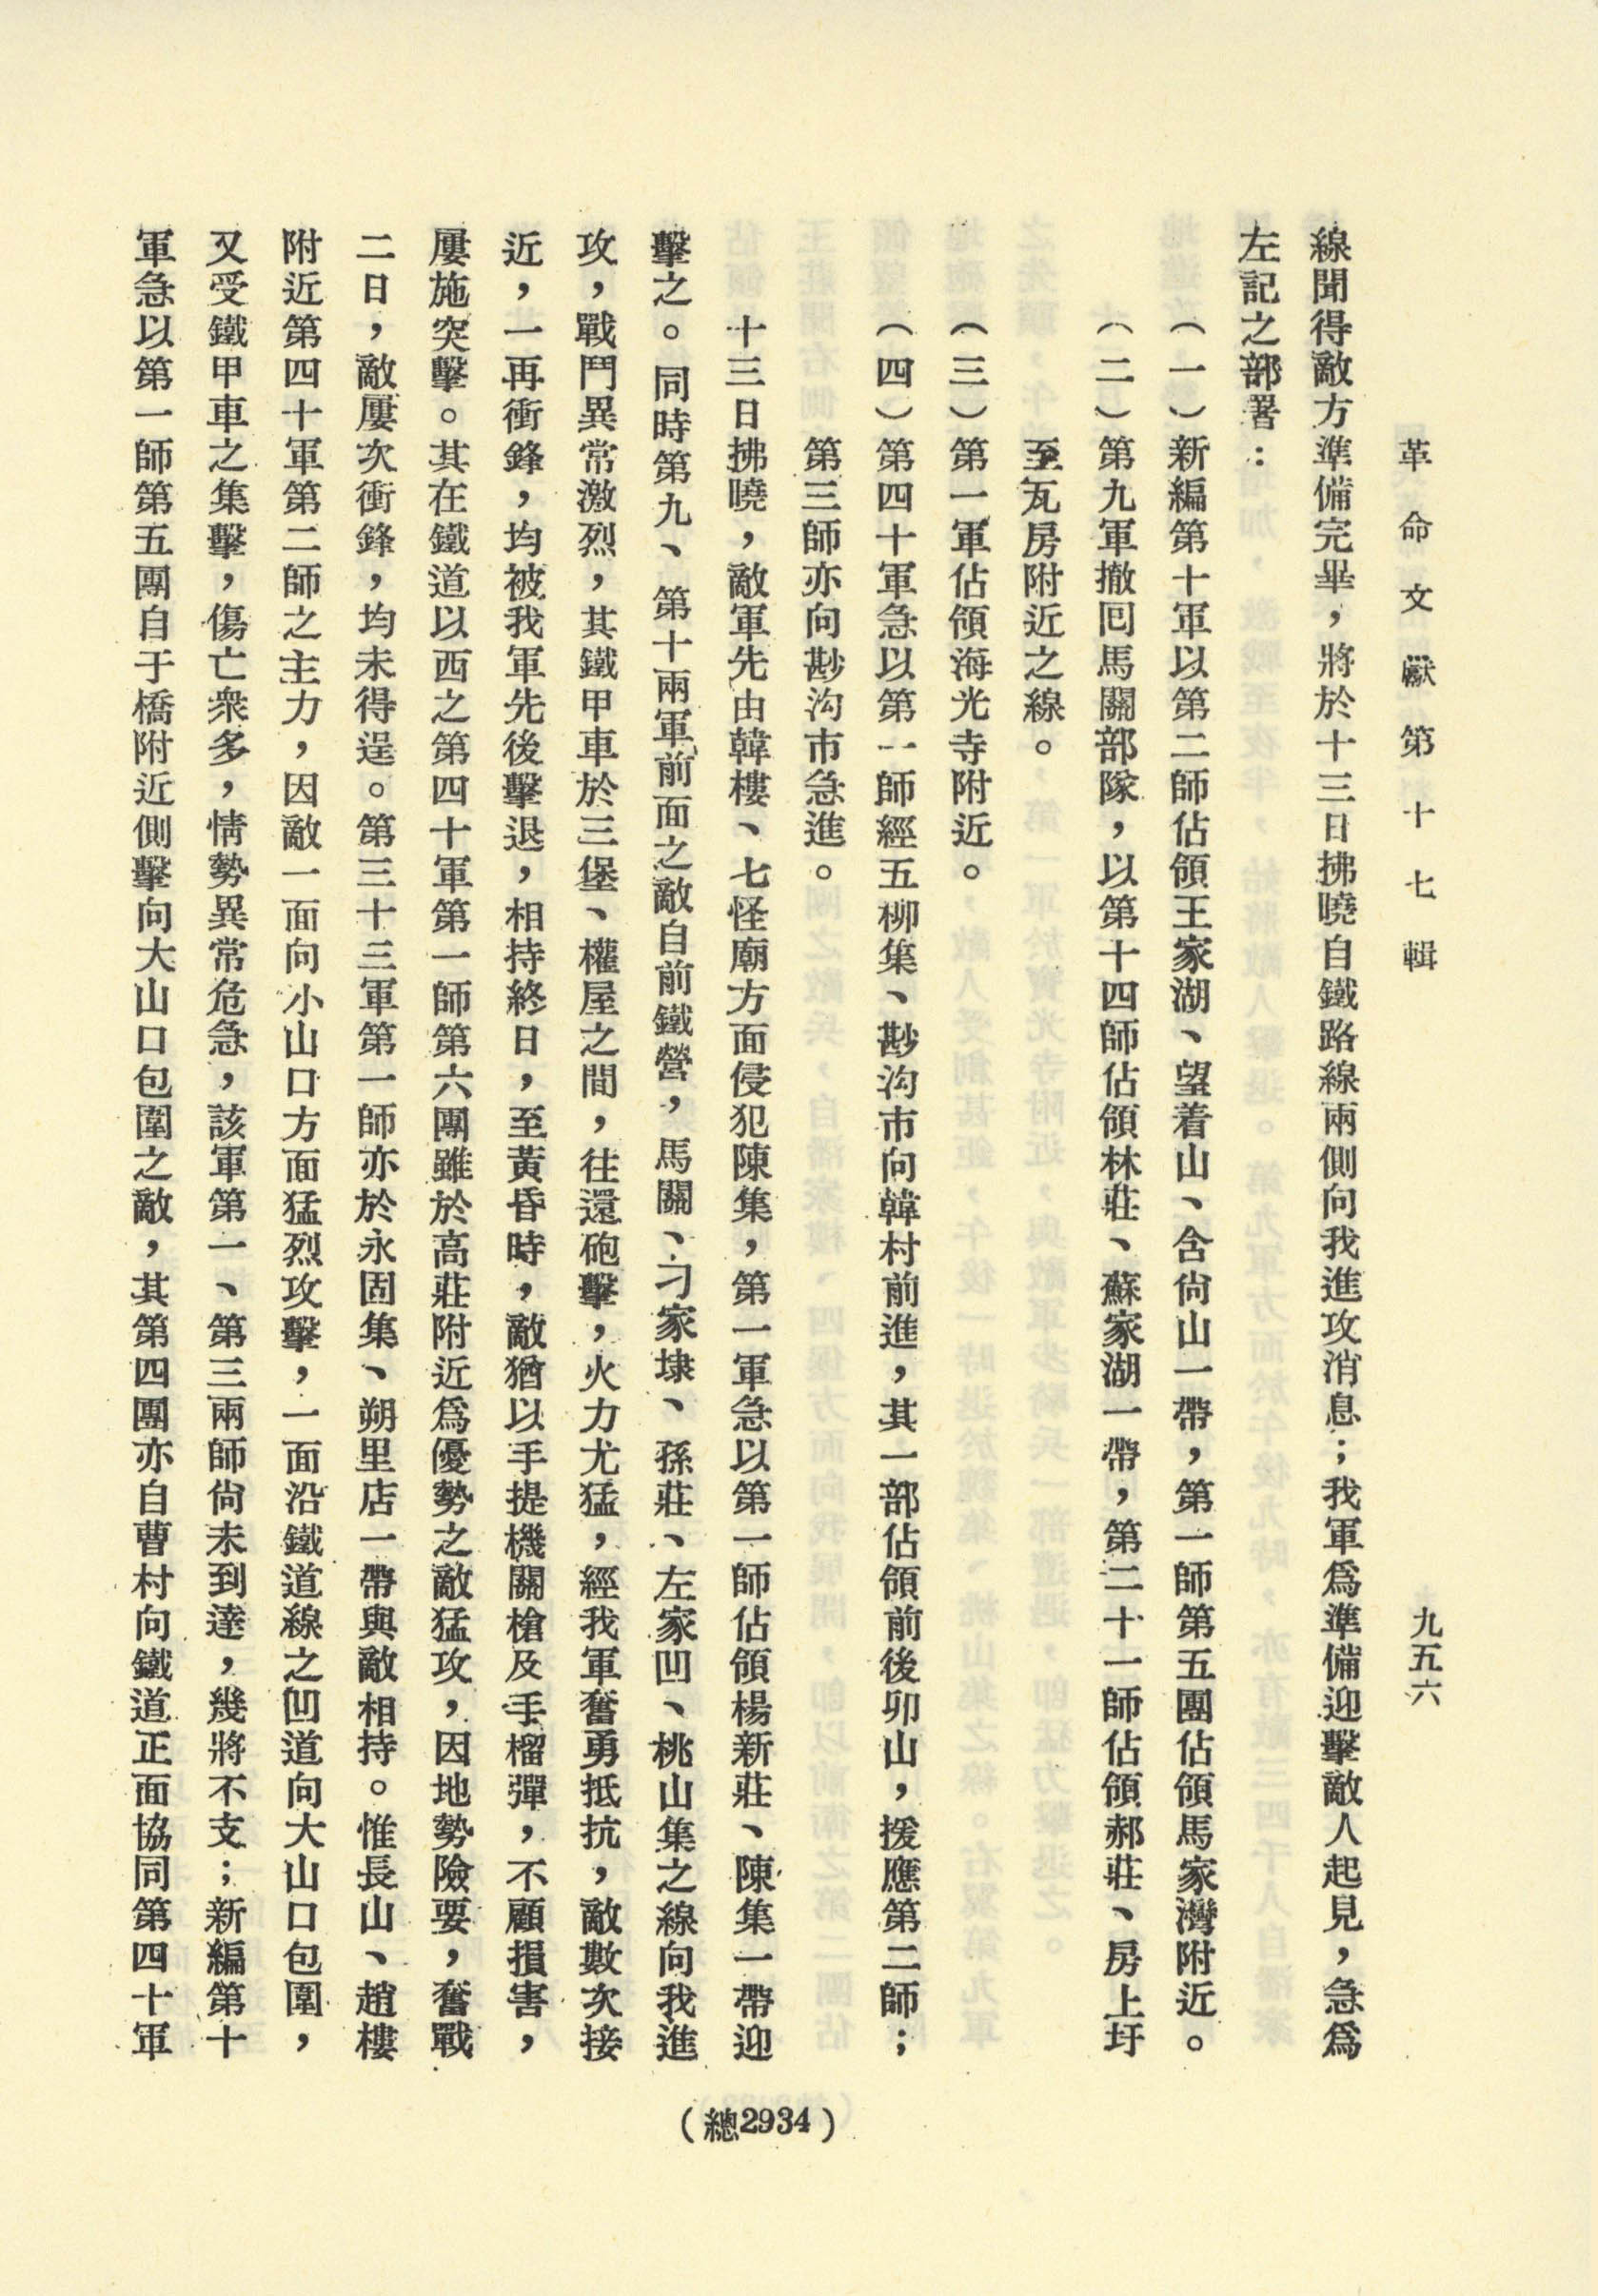 革命文獻第十七輯
九五六
線聞得敵方準備完畢，將於十三日拂曉自鐵路線兩側向我進攻消息；我軍爲準備迎擊敵人起見，急爲
左記之部署：
（一）新編第十軍以第二師佔領王家湖、望着山、含尙山一帶，第一師第五團佔領馬家灣附近。
（二）第九軍撤囘馬關部隊，以第十四師佔領林莊、蘇家湖一帶，第二十一師佔領郝莊、房上圩
至瓦房附近之線。
（三）第一軍佔領海光寺附近。
（四）第四十軍急以第一師經五柳集、尠沟市向韓村前進，其一部佔領前後卯山，援應第二師；
第三師亦向尠沟市急進。
十三日拂曉，敵軍先由韓樓、七怪廟方面侵犯陳集，第一軍急以第一師佔領楊新莊、陳集一帶迎
擊之。同時第九、第十兩軍前面之敵自前鐵營，馬關、刁家埭、孫莊、左家凹、桃山集之線向我進
攻，戰鬥異常激烈，其鐵甲車於三堡、權屋之間，往還砲擊，火力尤猛，經我軍奮勇抵抗，敵數次接
近，一再衝鋒，均被我軍先後擊退，相持終日，至黃昏時，敵猶以手提機關槍及手榴彈，不顧損害，
屢施突擊。其在鐵道以西之第四十軍第一師第六團雖於高莊附近爲優勢之敵猛攻，因地勢險要，奮戰
二日，敵屢次衝鋒，均未得逞。第三十三軍第一師亦於永固集、朔里店一帶與敵相持。惟長山、趙樓
附近第四十軍第二師之主力，因敵一面向小山口方面猛烈攻擊，一面沿鐵道線之凹道向大山口包圍，
又受鐵甲車之集擊，傷亡衆多，情勢異常危急，該軍第一、第三兩師尙未到達，幾將不支；新編第十
軍急以第一師第五團自于橋附近側擊向大山口包圍之敵，其第四團亦自曹村向鐵道正面協同第四十軍
（總2934）